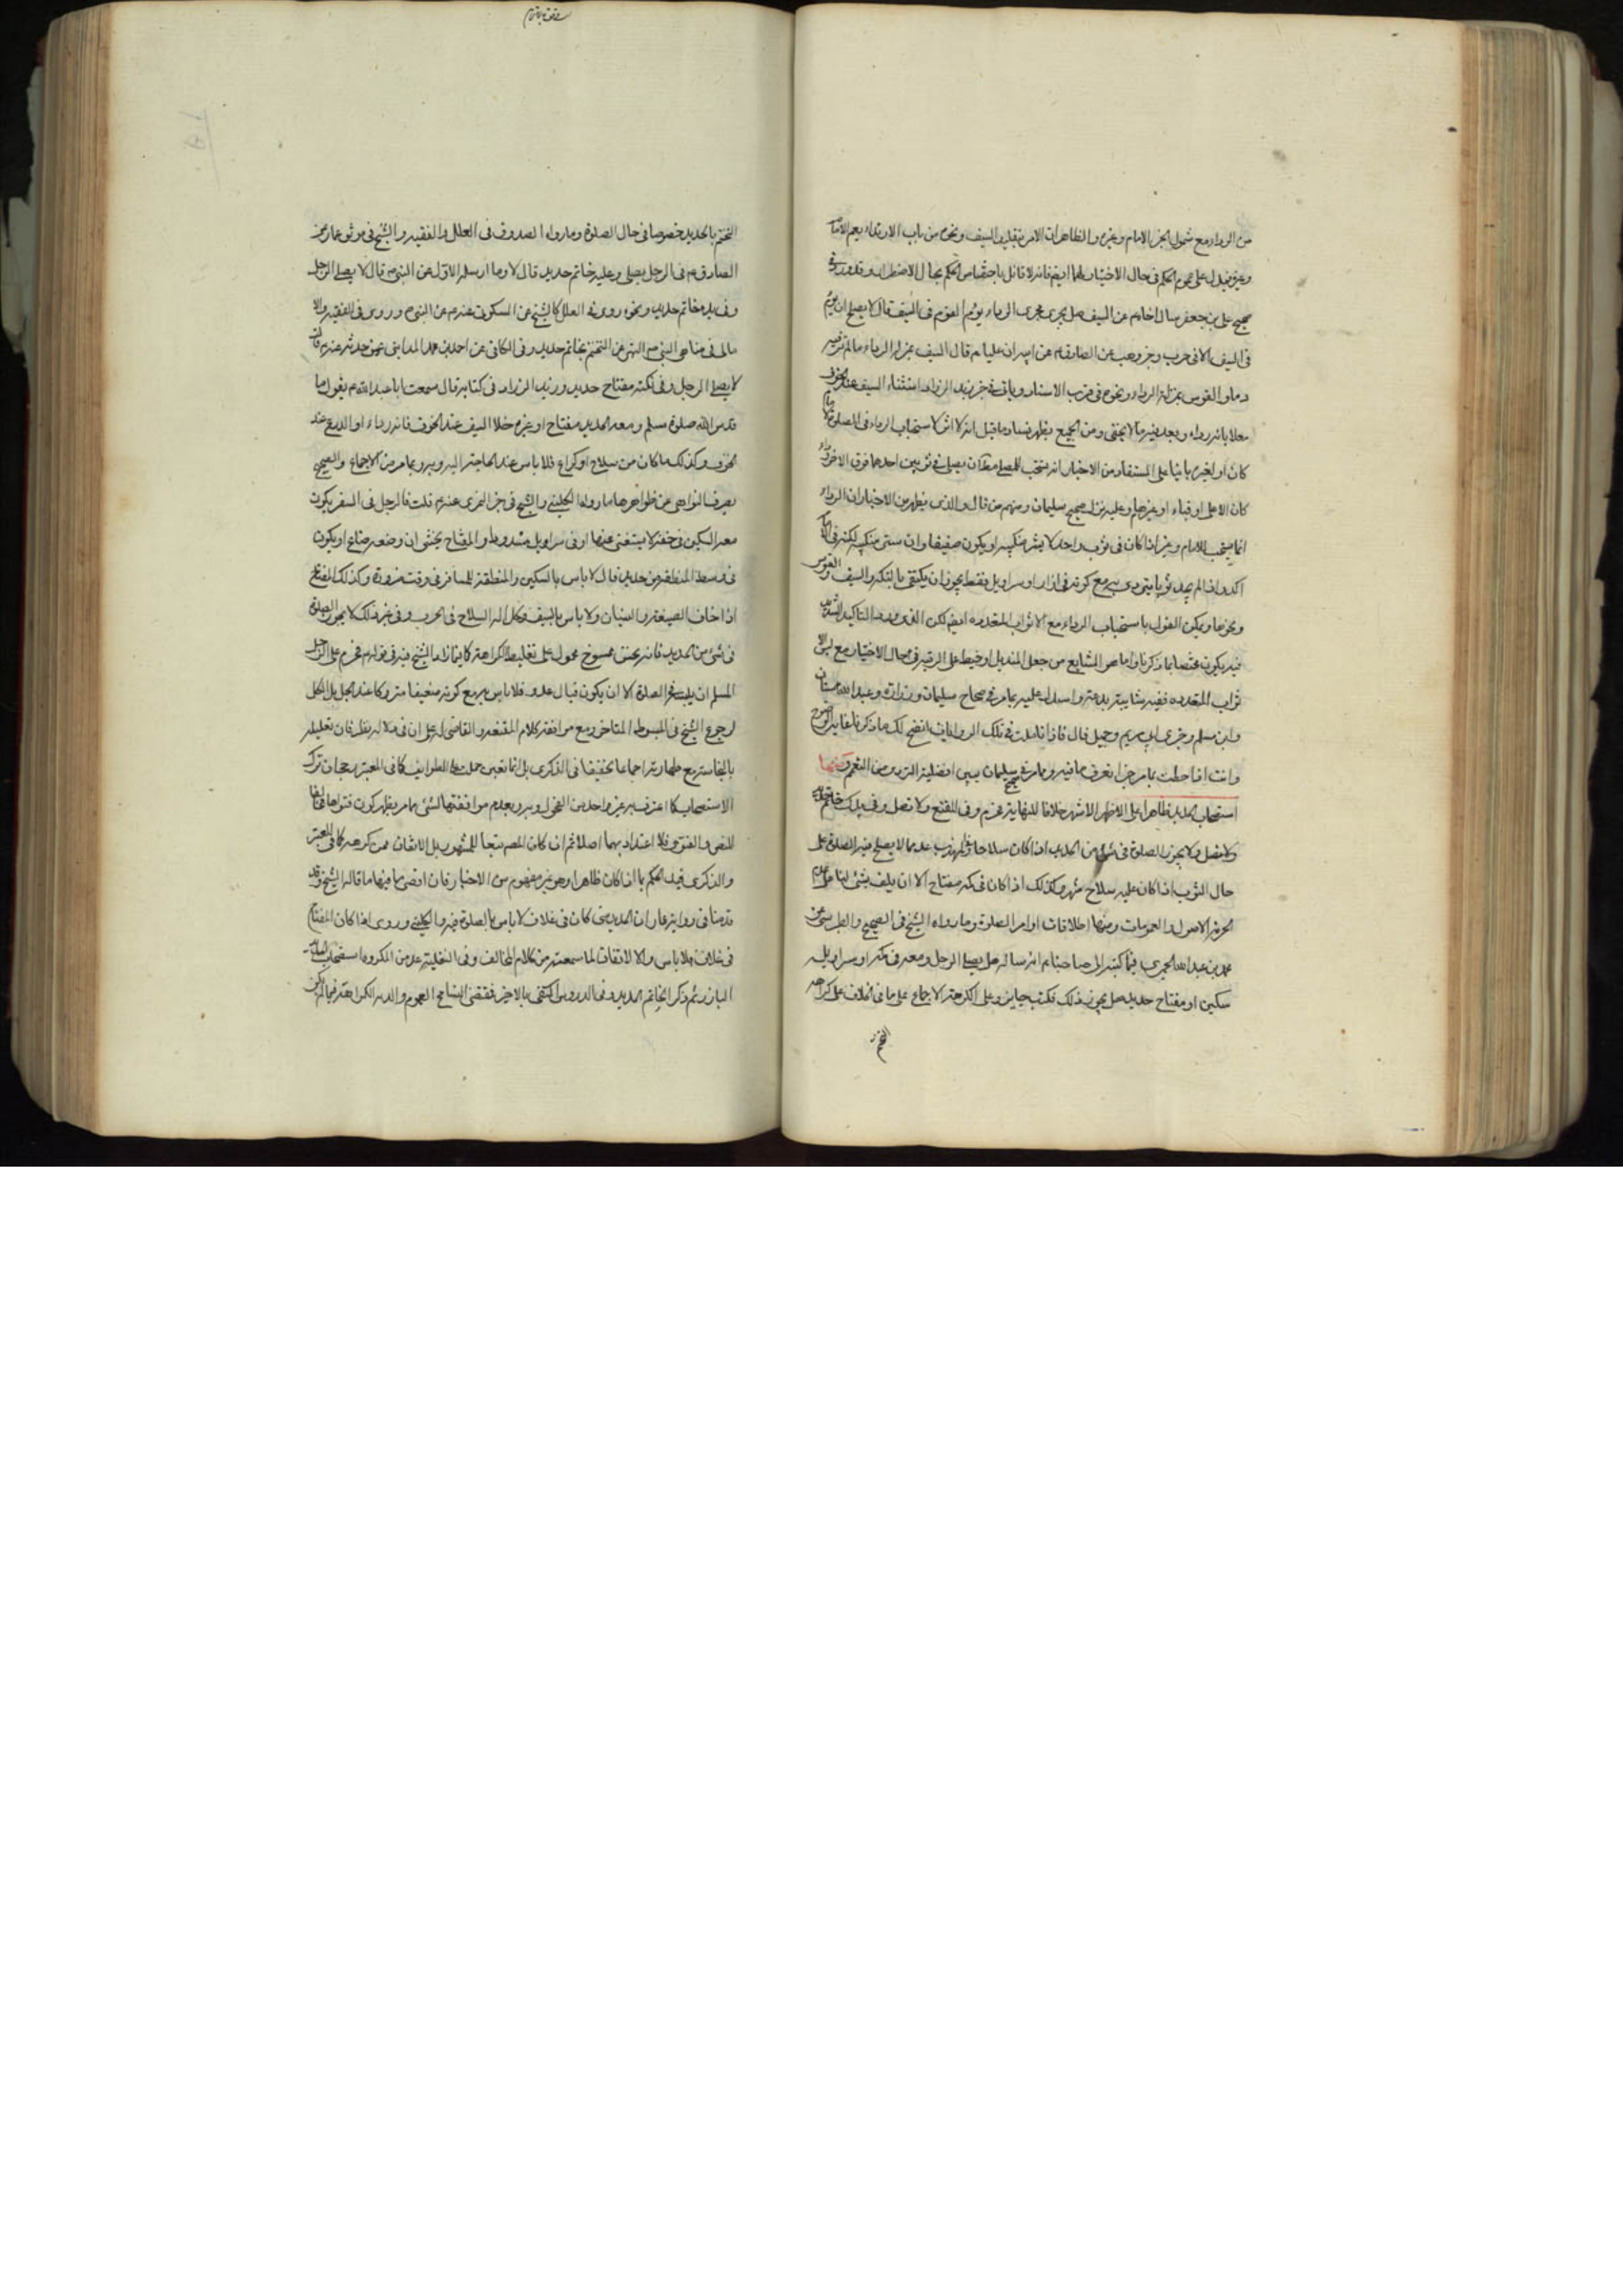 من الرداء مع شمول الخبر الامام وغيره والظاهر ان الامر بتقليد السيف ونحوه من باب الارتداء يعم الامام
وغيره فيدل على عموم الحكم في حال الاختيار لهما ايضا فانه لا قائل باختصاص الحكم بحال الاضطرار وقد ورد في
صحيح علي بن جعفر سال اخاه م عن السيف هل يجري مجرى الرداء يؤم القوم في السيف قال لا يصلح ان يؤم
في السيف الا في حرب وخبر وهب عن الصادق م عن ابيه ان عليا م قال السيف بمنزلة الرداء ما لم تر فيه
دما والقوس بمنزلة الرداء ونحوه في قرب الاسناد وياتي في خبر زيد الزراد استثناء السيف عند الخوف
معللا بانه رداء وبعد فيه ما لا يخفى ومن الجميع يظهر فساد ما قيل انه لا اثر لاستحباب الرداء في المصلي اماما
كان او لغيره باننا على المستفاد من الاخبار انه يستحب للمصلي مطلقا ان يصلي في ثوبين احدهما فوق الاخر رداء
كان الاعلى او قباء او غيرهما وعليه نزل صحيح سليمان ومنهم من قال والذي يظهر من الاخبار ان الرداء
انما يستحب للامام وغيره اذا كان في ثوب واحد لا يستر منكبيه او يكون صفيقا وان ستر منكبيه لكنه في الامام
اكد واذا لم يجد ثوبا يرتدي به مع كونه في ازار او سراويل فقط يجوز ان يكتفي بالتكة والسيف والقوس
ونحوها ويمكن القول باستحباب الرداء مع الاثواب المتعددة ايضا لكن الذي ورد التاكيد الشديد
فيه يكون مختصا بما ذكرنا واما هو الشايع من جعل المنديل او خيط على الرقبة في حال الاختيار مع لبس الا
ثواب المتعددة ففيه شايبة بدعة واستدل عليه بما مر في صحاح سليمان وزرارة وعبد الله بن سنان
وابن مسلم وخبري ابي مريم وجميل قال فاذا تاملت في تلك الروايات اتضح لك ما ذكرنا غاية الوضوح
وانت اذا احطت بما مر خبرا تعرف ما فيه وما مر في صحيح سليمان يبين افضلية التردي من التعمم ومنها
استصحاب الحديد ظاهرا على الاظهر الاشهر خلافا للنهاية فحرم وفي المقنع ولا تصل وفي يدك خاتم حديد
ولا تصل ولا يجوز الصلوة في شيء من الحديد اذا كان سلاحا والمهذب عد مما لا يصلي فيه الصلوة على
حال الثوب اذا كان عليه سلاح شهر وكذلك اذا كان في كمه مفتاح الا ان يلف بشيء لنا على عدم
الحرمة الاصول والعمومات ومنها اطلاقات اوامر الصلوة وما رواه الشيخ في الصحيح والطبرسي عن
محمد بن عبد الله الحميري فيما كتبه الى صاحبنا م انه ساله هل يصلي الرجل ومعه في كمه او سراويله
سكين او مفتاح حديد هل يجوز ذلك فكتب جايز وعلى الكراهة الاجماع على ما في الخلاف على كراهة
التختم
التختم بالحديد خصوصا في حال الصلوة وما رواه الصدوق في العلل والفقيه والشيخ في موثق عمار عن
الصادق م في الرجل يصلي وعليه خاتم حديد قال لا وما ارسله الاول عن النبي ص قال لا يصلي الرجل
وفي يده خاتم حديد ونحوه روى في العلل كالشيخ عن السكوني عنه م عن النبي ص وروى في الفقيه والا
مالي في مناهي النبي ص النهي عن التختم بخاتم حديد وفي الكافي عن احمد بن محمد المدايني عمن حدثه عنه م قال
لا يصلي الرجل وفي تكته مفتاح حديد وزيد الزراد في كتابه قال سمعت ابا عبد الله م يقول ما
قدس الله صلوة مسلم ومعه الحديد مفتاح او غيره خلا السيف عند الخوف فانه رداء او الدرع عند
الخوف وكذلك ما كان من سلاح او كراع فلا باس عند الحاجة اليه وبه وبما مر من الاجماع والصحيح
يصرف النواهي عن ظواهرها ما رواه الكليني والشيخ في خبر النميري عنه م قلت فالرجل في السفر يكون
معه السكين في خفه لا يستغني عنها او في سراويل مشدودا والمفتاح يخشى ان وضعه ضاع او يكون
في وسطه المنطقة من حديد قال لا باس بالسكين والمنطقة للمسافر في وقت ضرورة وكذلك المفتاح
اذا خاف الضيعة والنسيان ولا باس بالسيف وكل الة السلاح في الحرب وفي غير ذلك لا يجوز الصلوة
في شيء من الحديد فانه نجس ممسوخ محمول على تغليظ الكراهة كما يمازاه الشيخ فيه في قوله م فحرم على الرجل
المسلم ان يلبسه في الصلوة الا ان يكون قبال عدو فلا باس به مع كونه ضعيفا متروكا عند الجل بل الكل
لرجوع الشيخ في المبسوط المتاخر ومع موافقة كلام المقنعة والقاضي له على ان في دلالته نظر فان تعليله
بالنجاسة مع طهارته اجماعا تحقيقا في الذكرى بل انما تعيين حمله على الطرايف كما في المعتبر رجحان ترك
الاستصحاب كما اعترف به غير واحد من الفحول وبه وبعدم موافقتها لشيء مما مر يظهر كون فتواها مخالفا
للنص والفتوى فلا اعتداد بهما اصلا ثم ان كان المصنف تبعا للمشهور بل الاتفاق ممن كرهه كما في المعتبر
والذكرى قيد الحكم بما اذا كان ظاهرا وهو غير مفهوم من الاخبار فان اقصى ما فيها ما قاله الشيخ وقد
قدمنا في رواية عمار ان الحديد متى كان في غلاف لا باس بالصلوة فيه والكليني وروى اذا كان المفتاح
في غلاف فلا باس والا الاتفاقات لما سمعته من كلام المخالف وفي النفلية عد من المكروه استصحاب الحديد
البارز ثم ذكر الخاتم الحديد وفي الدروس اكتفى بالاخير فقتضى التسامح العموم والدة الكراهة فيما لم يكن